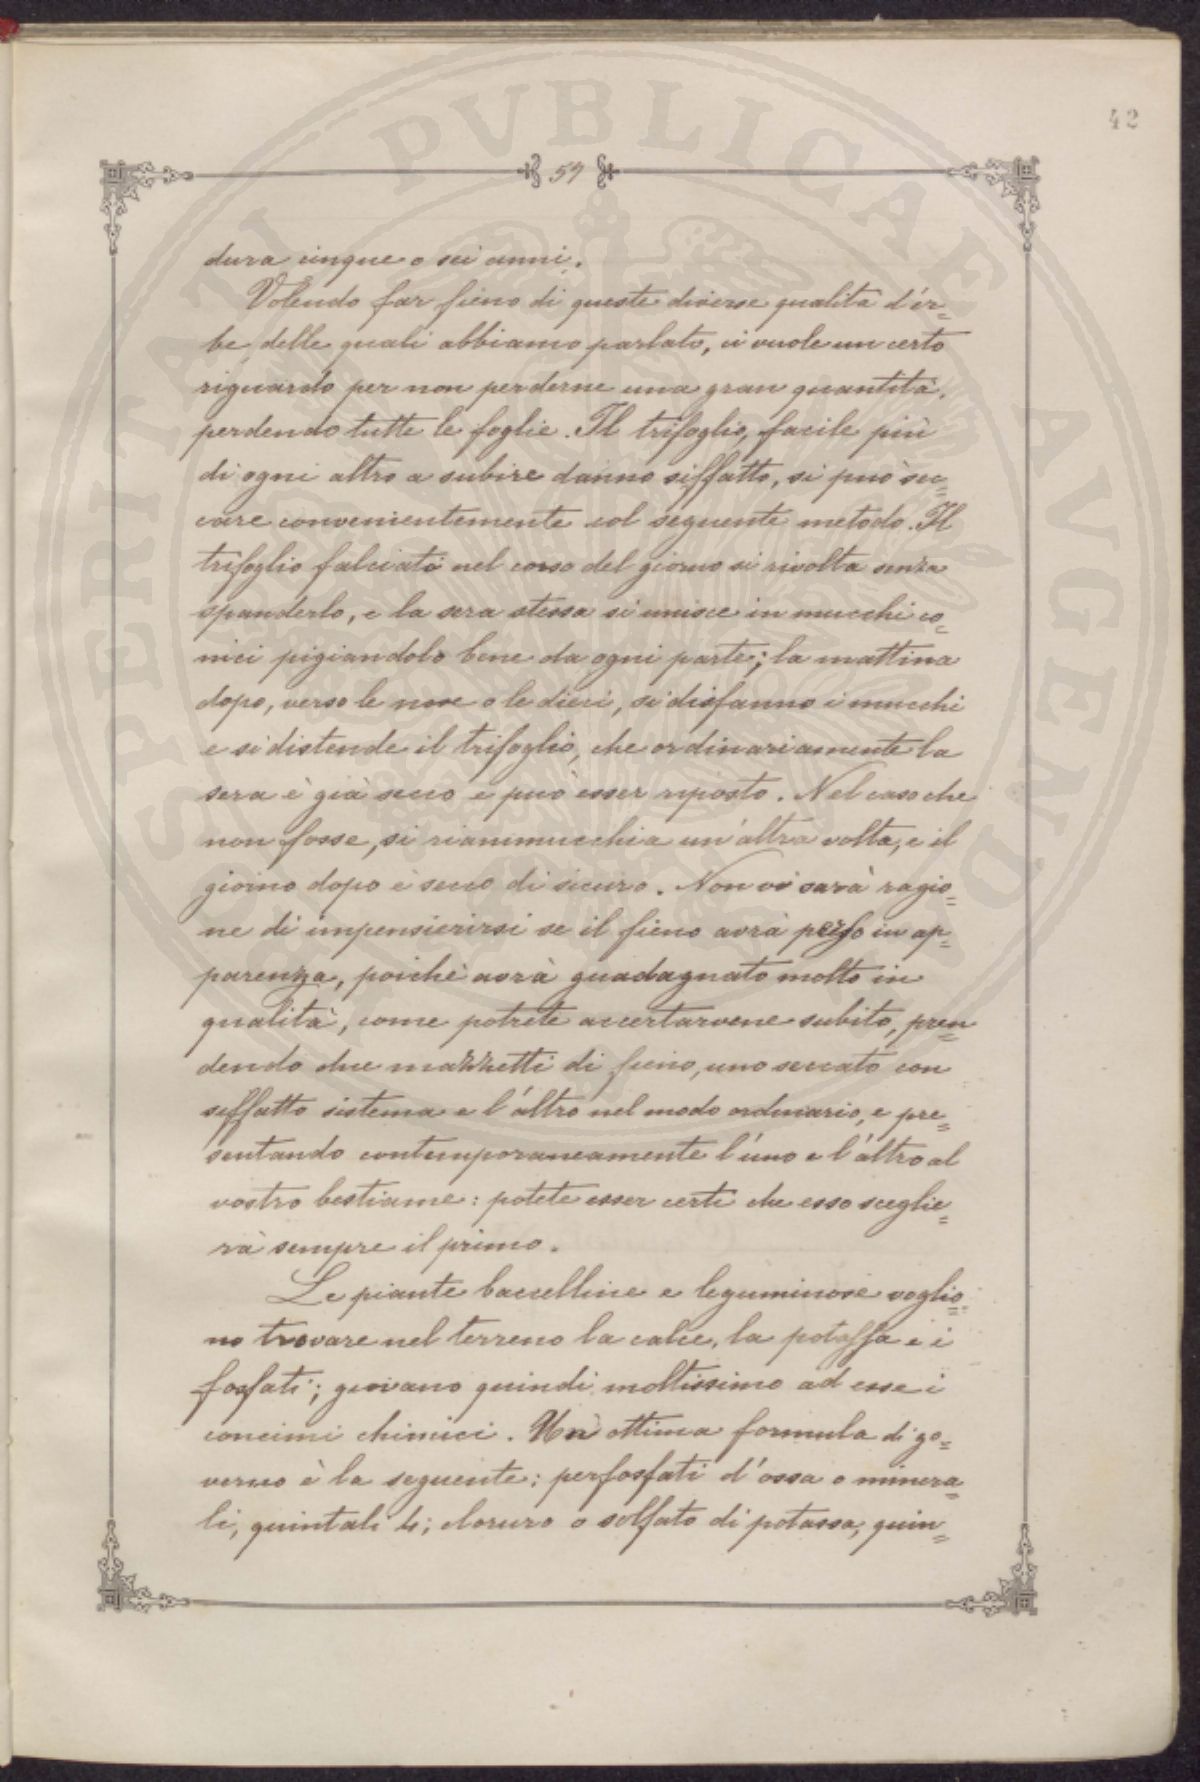 42
57
dura cinque o sei anni.
Volendo far fieno di queste diverse qualità d'er=
be, delle quali abbiamo parlato, ci vuole un certo
riguardo per non perderne una gran quantità,
perdendo tutte le foglie. Il trifoglio, facile più
di ogni altro a subire danno siffatto, si può sec=
care convenientemente col seguente metodo. Il
trifoglio falciato nel corso del giorno si rivolta senza
spanderlo, e la sera stessa si unisce in mucchi co=
nici pigiandolo bene da ogni parte; la mattina
dopo, verso le nove o le dieci, si disfanno i mucchi
e si distende il trifoglio, che ordinariamente la
sera è già secco e può esser riposto. Nel caso che
non fosse, si riammucchia un'altra volta, e il
giorno dopo è secco di sicuro. Non vi sarà ragio=
ne di impensierirsi se il fieno avrà perso in ap=
parenza, poichè avrà guadagnato molto in
qualità, come potrete accertarvene subito, pren=
dendo due mazzetti di fieno, uno seccato con
siffatto sistema e l'altro nel modo ordinario, e pre=
sentando contemporaneamente l'uno e l'altro al
vostro bestiame: potete esser certi che esso sceglie=
rà sempre il primo.
Le piante baccelline e leguminose voglio=
no trovare nel terreno la calce, la potassa e i
fosfati; giovano quindi moltissimo ad esse i
concimi chimici. Un'ottima formula di go=
verno è la seguente: perfosfati d'ossa o minera=
li, quintali 4; cloruro o solfato di potassa, quin=
PROSPERITATI PVBLICAE AVGENDAE